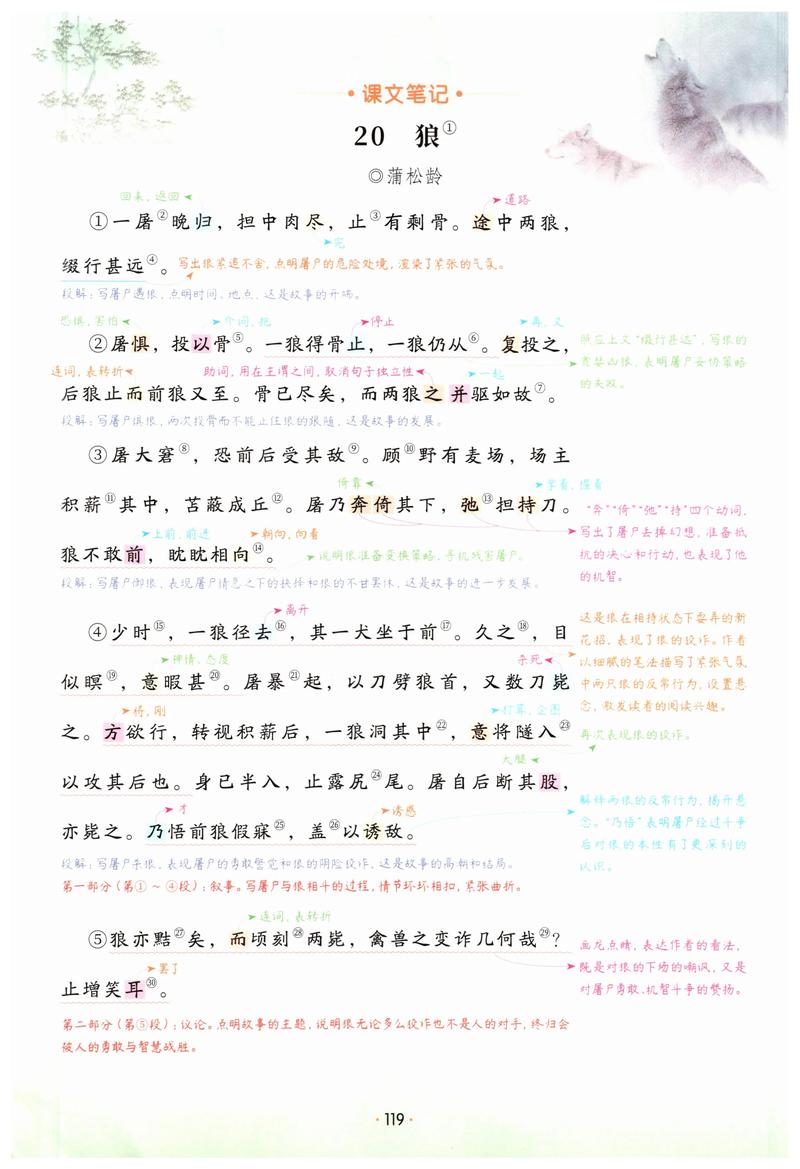 ·课文笔记·
20 狼①
◎蒲松龄
回来，返回
道路
①一屠②晚归，担中肉尽，止③有剩骨。途中两狼，
完
缀行甚远④。写出狼紧追不舍，点明屠户的危险处境，渲染了紧张的气氛。
段解：写屠户遇狼，点明时间、地点，这是故事的开端。
恐惧，害怕
介词，把
停止
再，又
②屠惧，投以骨⑤。一狼得骨止，一狼仍从⑥。复投之，
照应上文“缀行甚远”，写狼的
贪婪凶狠，表明屠户妥协策略
的失败。
连词，表转折
助词，用在主谓之间，取消句子独立性
一起
后狼止而前狼又至。骨已尽矣，而两狼之并驱如故⑦。
段解：写屠户惧狼，两次投骨而不能止住狼的跟随，这是故事的发展。
③屠大窘⑧，恐前后受其敌⑨。顾⑩野有麦场，场主
倚靠
拿着，握着
积薪⑪其中，苫蔽成丘⑫。屠乃奔倚其下，弛⑬担持刀。
“奔”“倚”“弛”“持”四个动词，
写出了屠户去掉幻想，准备抵
抗的决心和行动，也表现了他
的机智。
上前，前进
朝向，向着
狼不敢前，眈眈相向⑭。
说明狼准备变换策略，寻机残害屠户。
段解：写屠户御狼，表现屠户情急之下的抉择和狼的不甘罢休，这是故事的进一步发展。
离开
④少时⑮，一狼径去⑯，其一犬坐于前⑰。久之⑱，目
这是狼在相持状态下耍弄的新
花招，表现了狼的狡诈。作者
以细腻的笔法描写了紧张气氛
中两只狼的反常行为，设置悬
念，激发读者的阅读兴趣。
神情、态度
杀死
似瞑⑲，意暇甚⑳。屠暴㉑起，以刀劈狼首，又数刀毙
将，刚
打算，企图
之。方欲行，转视积薪后，一狼洞其中㉒，意将隧入㉓
再次表现狼的狡诈。
大腿
以攻其后也。身已半入，止露尻㉔尾。屠自后断其股，
才
诱惑
亦毙之。乃悟前狼假寐㉕，盖㉖以诱敌。
解释两狼的反常行为，揭开悬
念。“乃悟”表明屠户经过斗争
后对狼的本性有了更深刻的
认识。
段解：写屠户杀狼，表现屠户的勇敢警觉和狼的阴险狡诈，这是故事的高潮和结局。
第一部分（第①～④段）：叙事。写屠户与狼相斗的过程，情节环环相扣，紧张曲折。
连词，表转折
⑤狼亦黠㉗矣，而顷刻㉘两毙，禽兽之变诈几何哉㉙？
画龙点睛，表达作者的看法，
既是对狼的下场的嘲讽，又是
对屠户勇敢、机智斗争的赞扬。
罢了
止增笑耳㉚。
第二部分（第⑤段）：议论。点明故事的主题，说明狼无论多么狡诈也不是人的对手，终归会
被人的勇敢与智慧战胜。
·119·